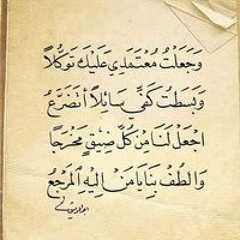 وَجَعَلْتُ مُعْتَمَدِي عَلَيْكَ تَوَكُّلًا
وَبَسَطْتُ كَفِّي سَائِلًا أَتَضَرَّعُ
اجْعَلْ لَنَا مِنْ كُلِّ ضِيقٍ مَخْرَجًا
وَالْطُفْ بِنَا يَا مَنْ إِلَيْهِ الْمَرْجِعُ